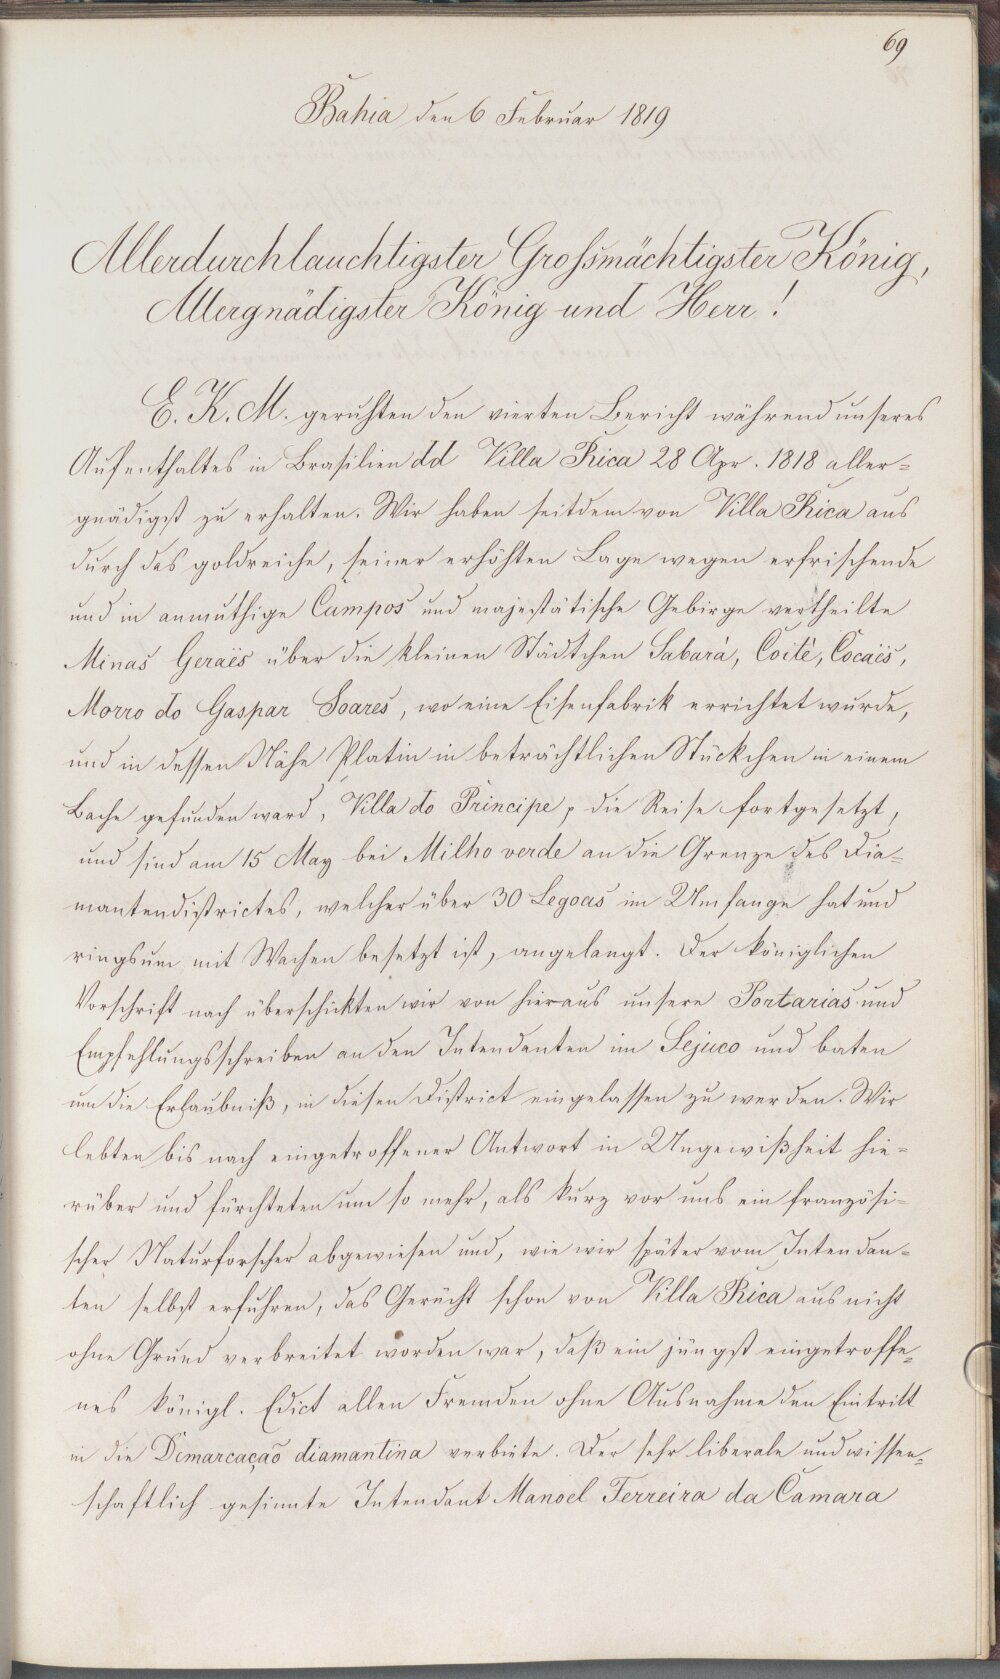 69
Bahia den 6 Februar 1819
Allerdurchlauchtigster Grossmächtigster König,
Allergnädigster König und Herr!
E. K. M. geruhten den vierten Bericht während unseres
Aufenthaltes in Brasilien dd Villa Rica 28 Apr. 1818 aller=
gnädigst zu erhalten. Wir haben seitdem von Villa Rica aus
durch das goldreiche, seiner erhöhten Lage wegen erfrischende
und in anmuthige Campos und majestätische Gebirge vertheilte
Minas Geraës über die kleinen Städtchen Sabarà, Coitê, Cocaës,
Morro do Gaspar Soares, wo eine Eisenfabrik errichtet wurde,
und in dessen Nähe Platin in beträchtlichen Stückchen in einem
Bache gefunden ward, Villa do Principe, die Reise fortgesetzt,
und sind am 15 May bei Milho verde an die Grenze des Dia=
mantendistrictes, welcher über 30 Legoas im Umfange hat und
ringsum mit Wachen besetzt ist, angelangt. Der königlichen
Vorschrift nach überschickten wir von hieraus unsere Portarias und
Empfehlungsschreiben an den Intendanten im Tejuco und baten
um die Erlaubniß, in diesen District eingelassen zu werden. Wir
lebten bis nach eingetroffener Antwort in Ungewißheit hie=
rüber und fürchteten um so mehr, als kurz vor uns ein französi=
scher Naturforscher abgewiesen und, wie wir später vom Intendan=
ten selbst erfuhren, das Gerücht schon von Villa Rica aus nicht
ohne Grund verbreitet worden war, daß ein jüngst eingetroffe=
nes königl. Edict allen Fremden ohne Ausnahme den Eintritt
in die Demarcação diamantina verbiete. Der sehr liberale und wissen=
schaftlich gesinnte Intendant Manoel Ferreira da Camara